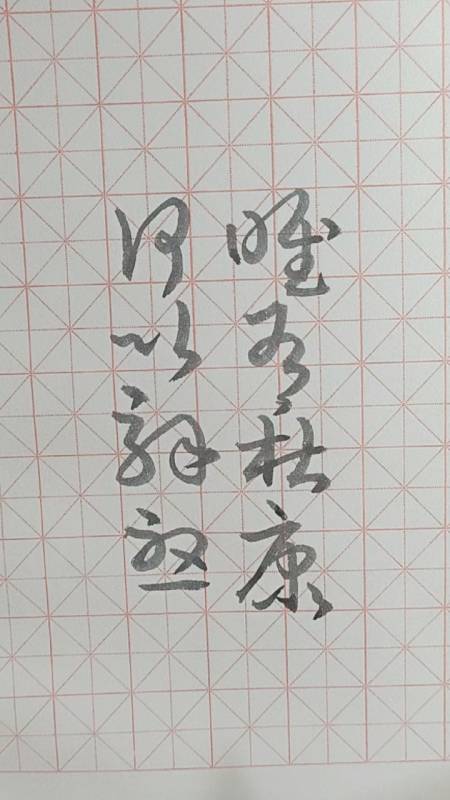 何以解愁
唯有杜康